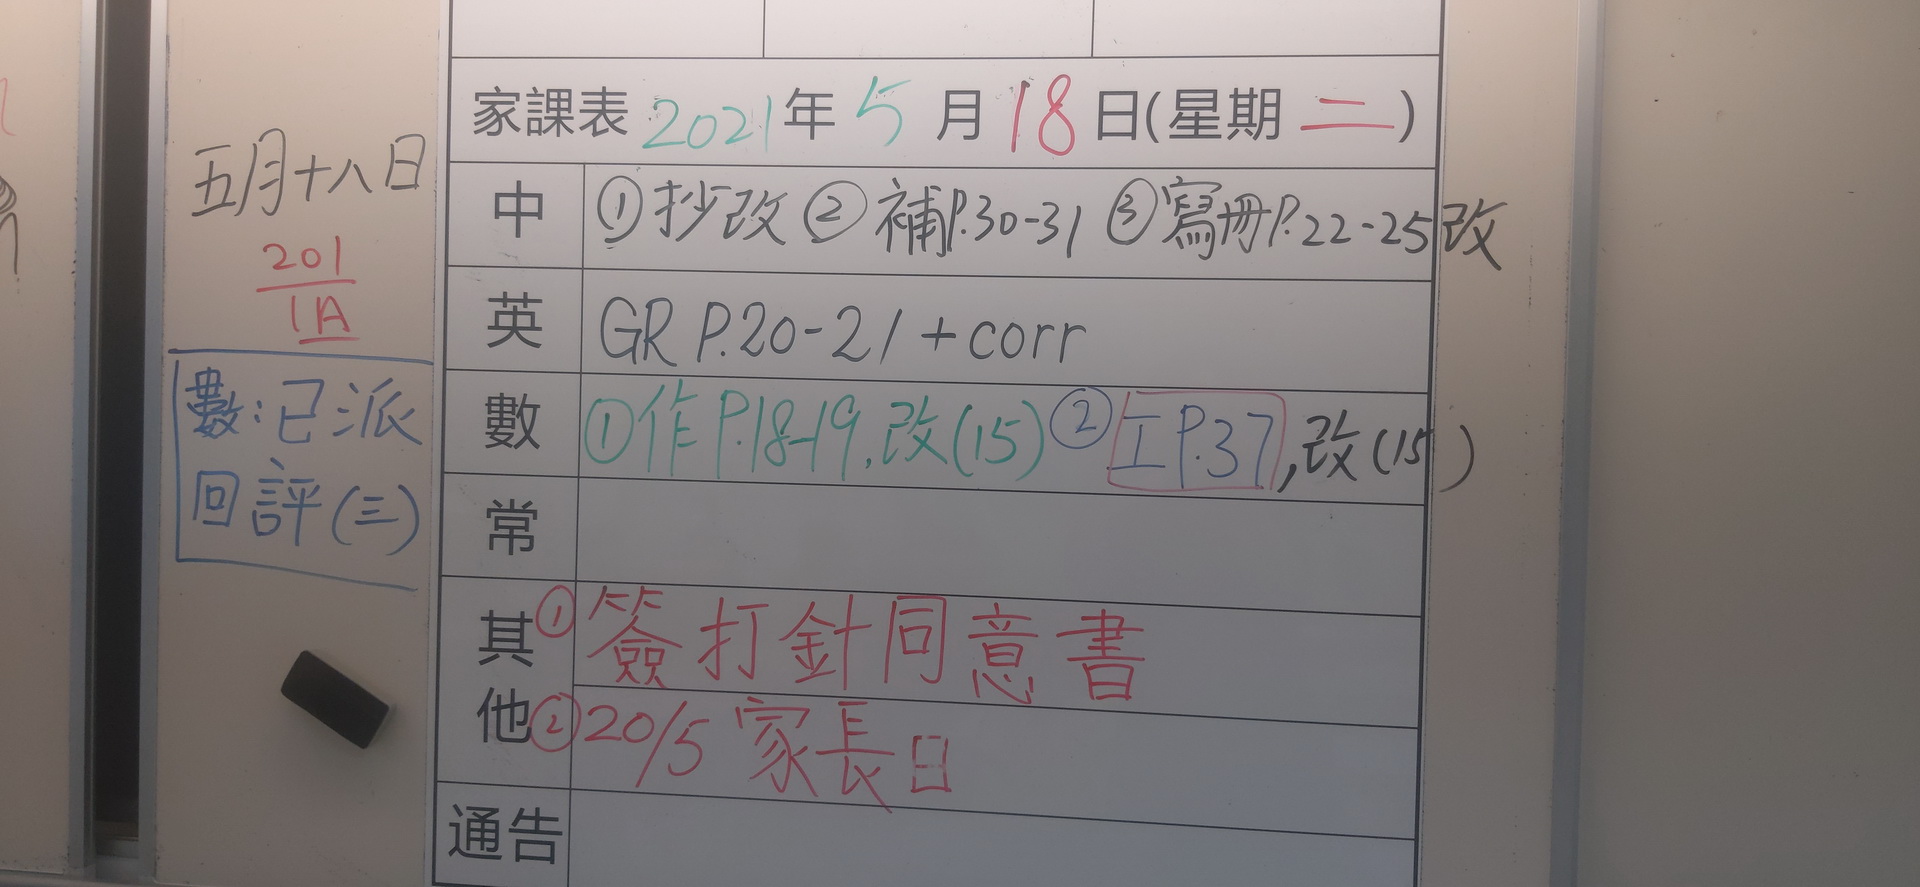 五月十八日
201
1A
數:已派
回評(三)
家課表 2021年 5 月 18 日(星期 二 )
中 ①抄改 ②補P.30-31 ③寫冊P.22-25改
英 GR P.20-21 + corr
數 ①作P.18-19,改(15) ②工P.37,改(15)
常
其他 ①簽打針同意書
②20/5 家長日
通告